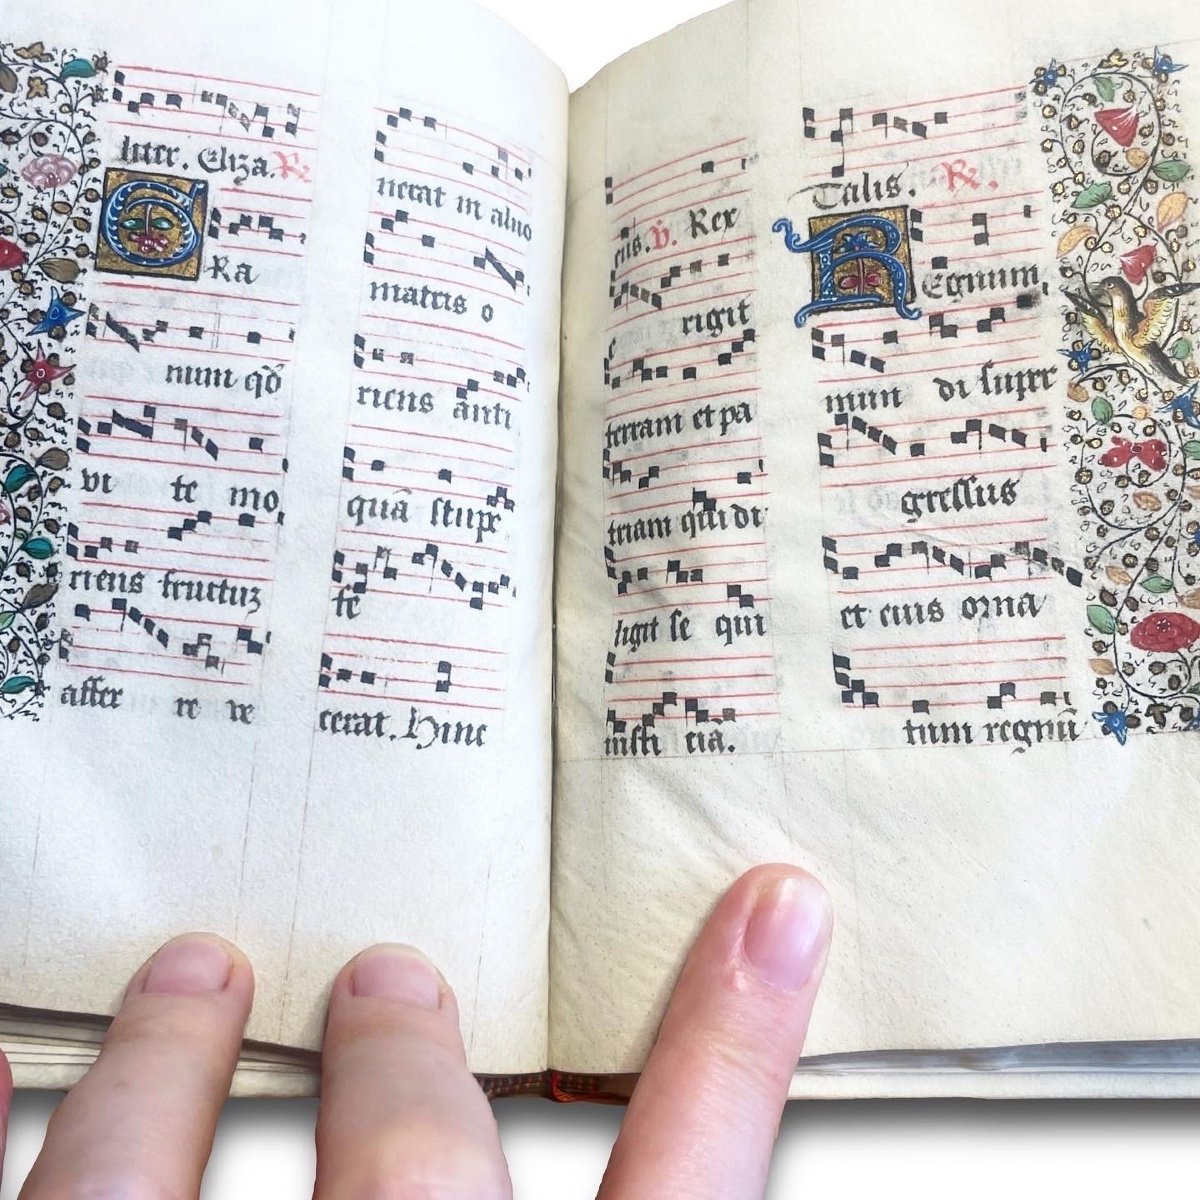 liter. Eliza. R.
GRa
num qđ
vi te mo
riens fructuz
affer re ve
nerat in aluo
matris o
riens anti
quā stupe
fe
cerat. Hinc
eius. V. Rex
rigit
terram et pa
triam qui di
ligit se qui
iusti ciā.
Talis. R.
REgnum
mun di super
gressus
et eius orna
tum regnū